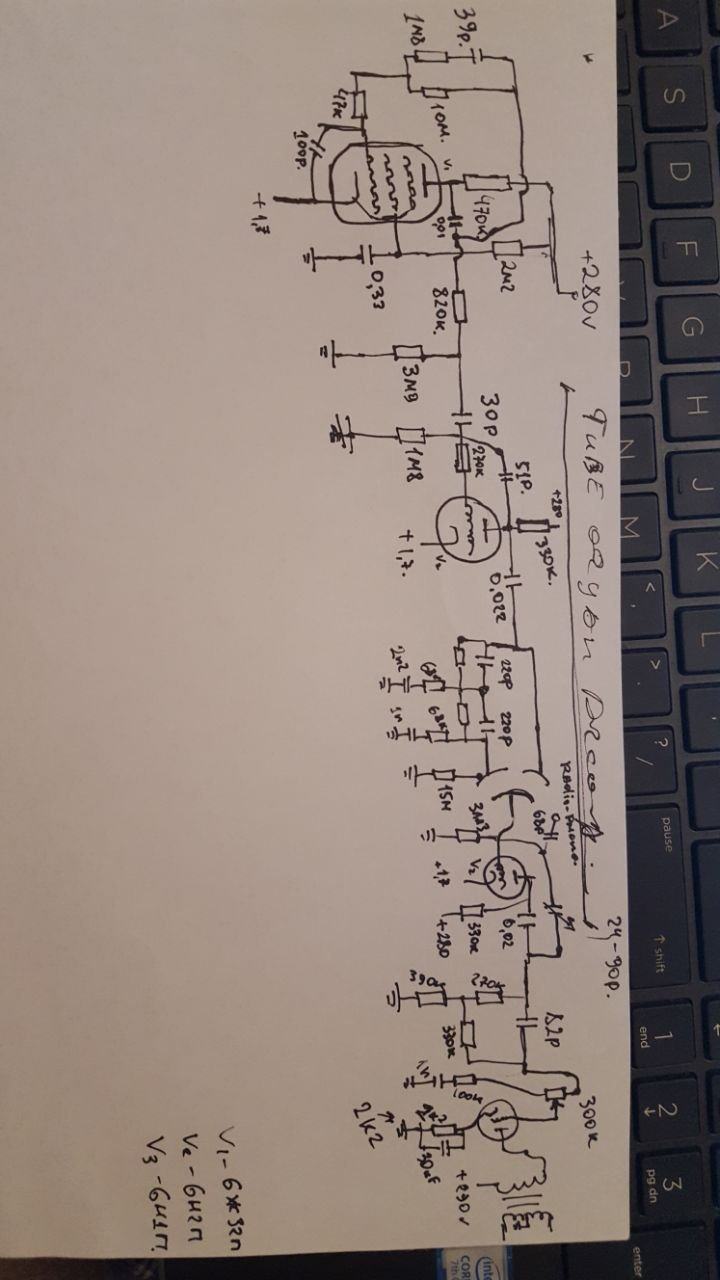 +280v
TUBE
39p.
1M8
10M.
47K
100p.
V1
470K
2M2
+1,7
0,33
820K.
3M9
30p
1M8
270K
51p.
+280
330K.
V2
+1,7.
0,022
220p
220p
68K
2n2
68K
1n
15M
Radio-Phono.
68p
3M3
V2
+1,7
330K
+280
0,02
24-90p.
82p
330K
1n
300K
2K2
30uF
+230v
V1-6Ж32П
V2-6Н2П
V3-6Н1П.
A
S
D
F
G
H
J
K
L
N
M
<
,
>
.
?
/
pause
↑ shift
1
end
2
↓
3
pg dn
enter